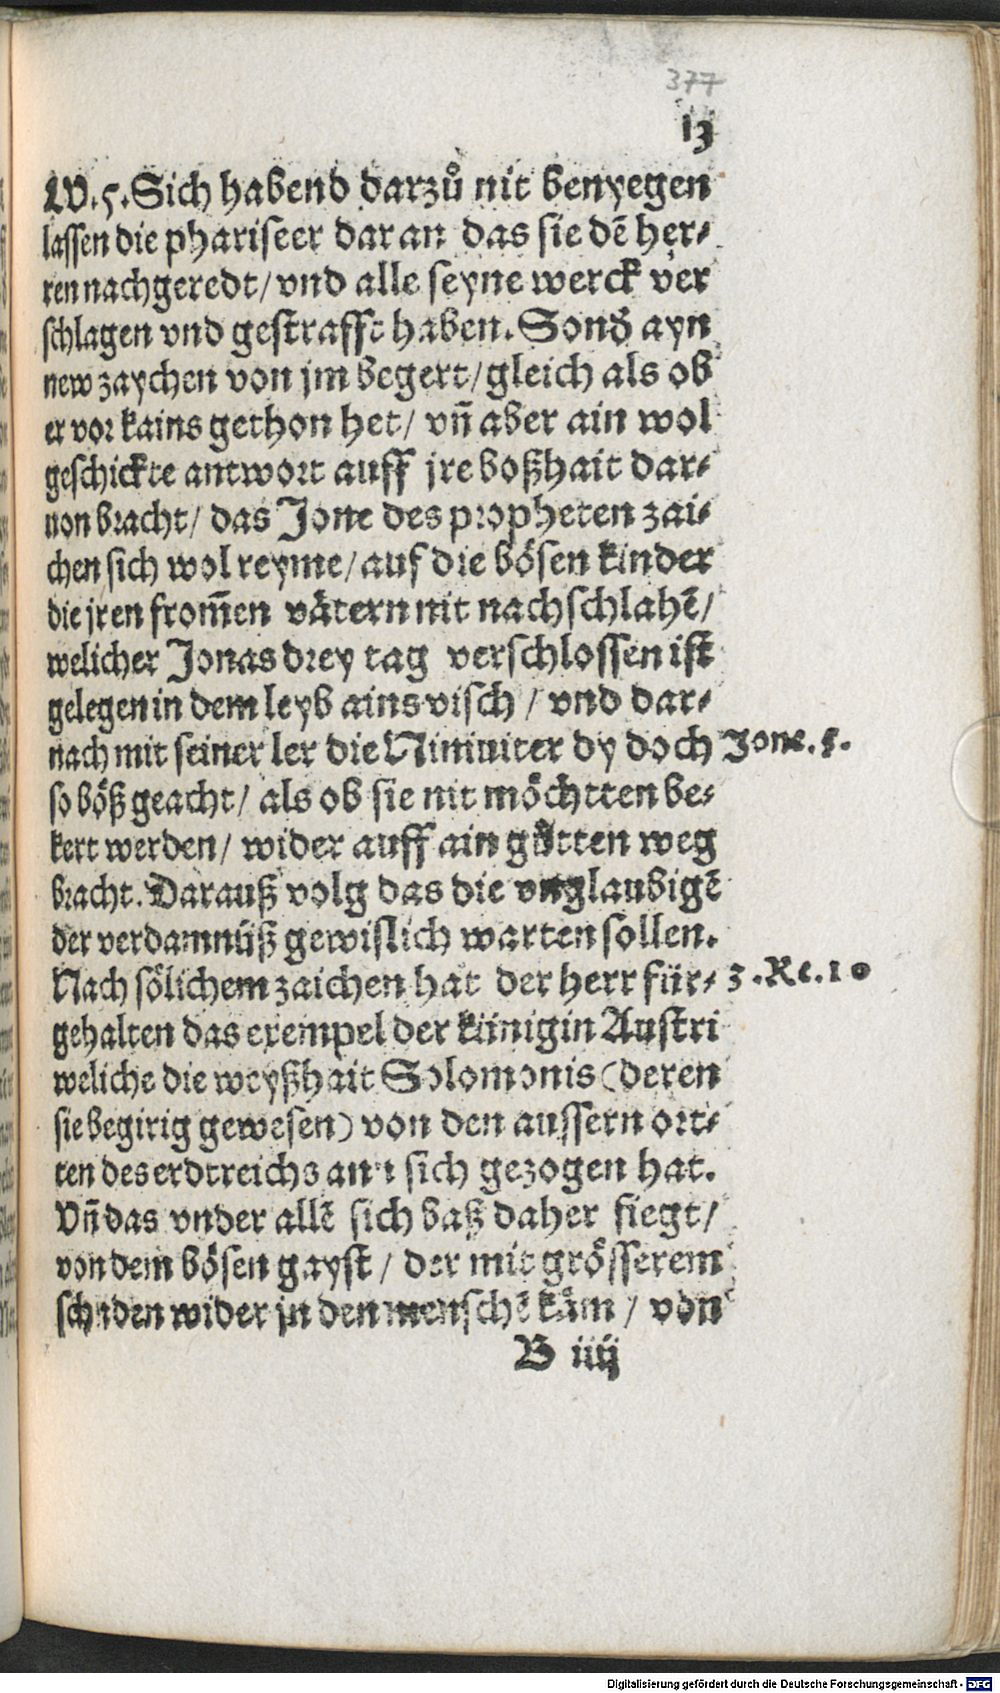 377
13
W.5. Sich habend darzů nit benyegen
lassen die phariseer dar an das sie dē her⸗
ren nachgeredt/ vnd alle seyne werck ver
schlagen vnd gestrafft haben. Sond̄ ayn
new zaychen von jm begert/ gleich als ob
er vor kains gethon het/ vn̄ aber ain wol
geschickte antwort auff jre boßhait dar⸗
uon bracht/ das Jone des propheten zai⸗
chen sich wol reyme/ auf die bösen kinder
die jren from̄en vätern nit nachschlahē/
welicher Jonas drey tag verschlossen ist
gelegen in dem leyb ains visch / vnd dar⸗
nach mit seiner ler die Niniuiter dy doch
Jone. 5.
so böß geacht/ als ob sie nit möchtten be⸗
kert werden/ wider auff ain gůtten weg
bracht. Darauß volg das die vnglaubigē
der verdamnüß gewislich warten sollen.
Nach sölichem zaichen hat der herr für⸗
3. Re. 10
gehalten das exempel der künigin Austri
weliche die weyßhait Solomonis (deren
sie begirig gewesen) von den aussern ort⸗
ten des erdtreichs an sich gezogen hat.
Vn̄ das vnder allē sich baß daher fiegt/
von dem bösen gayst / der mit grösserem
schaden wider jn den menschē käm / von
B iiij
Digitalisierung gefördert durch die Deutsche Forschungsgemeinschaft - DFG